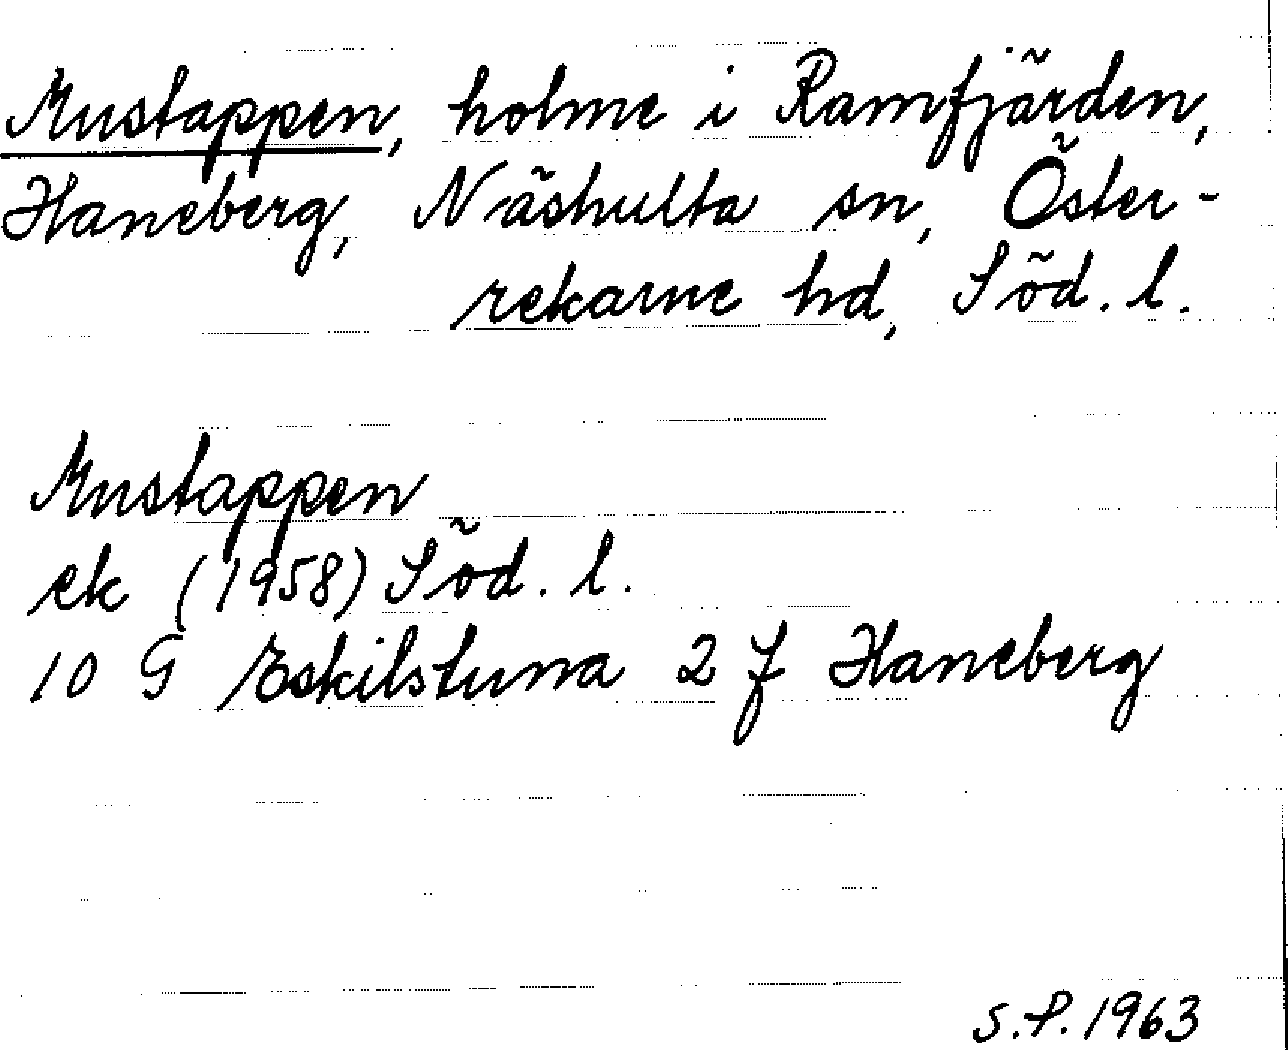 Mustappen, holme i Ramfjärden,
Haneberg, Näshulta sn, Öster-
rekarne hd, Söd. l.
Mustappen
ek (1958) Söd. l.
10 G Eskilstuna 2 f Haneberg
S.P. 1963